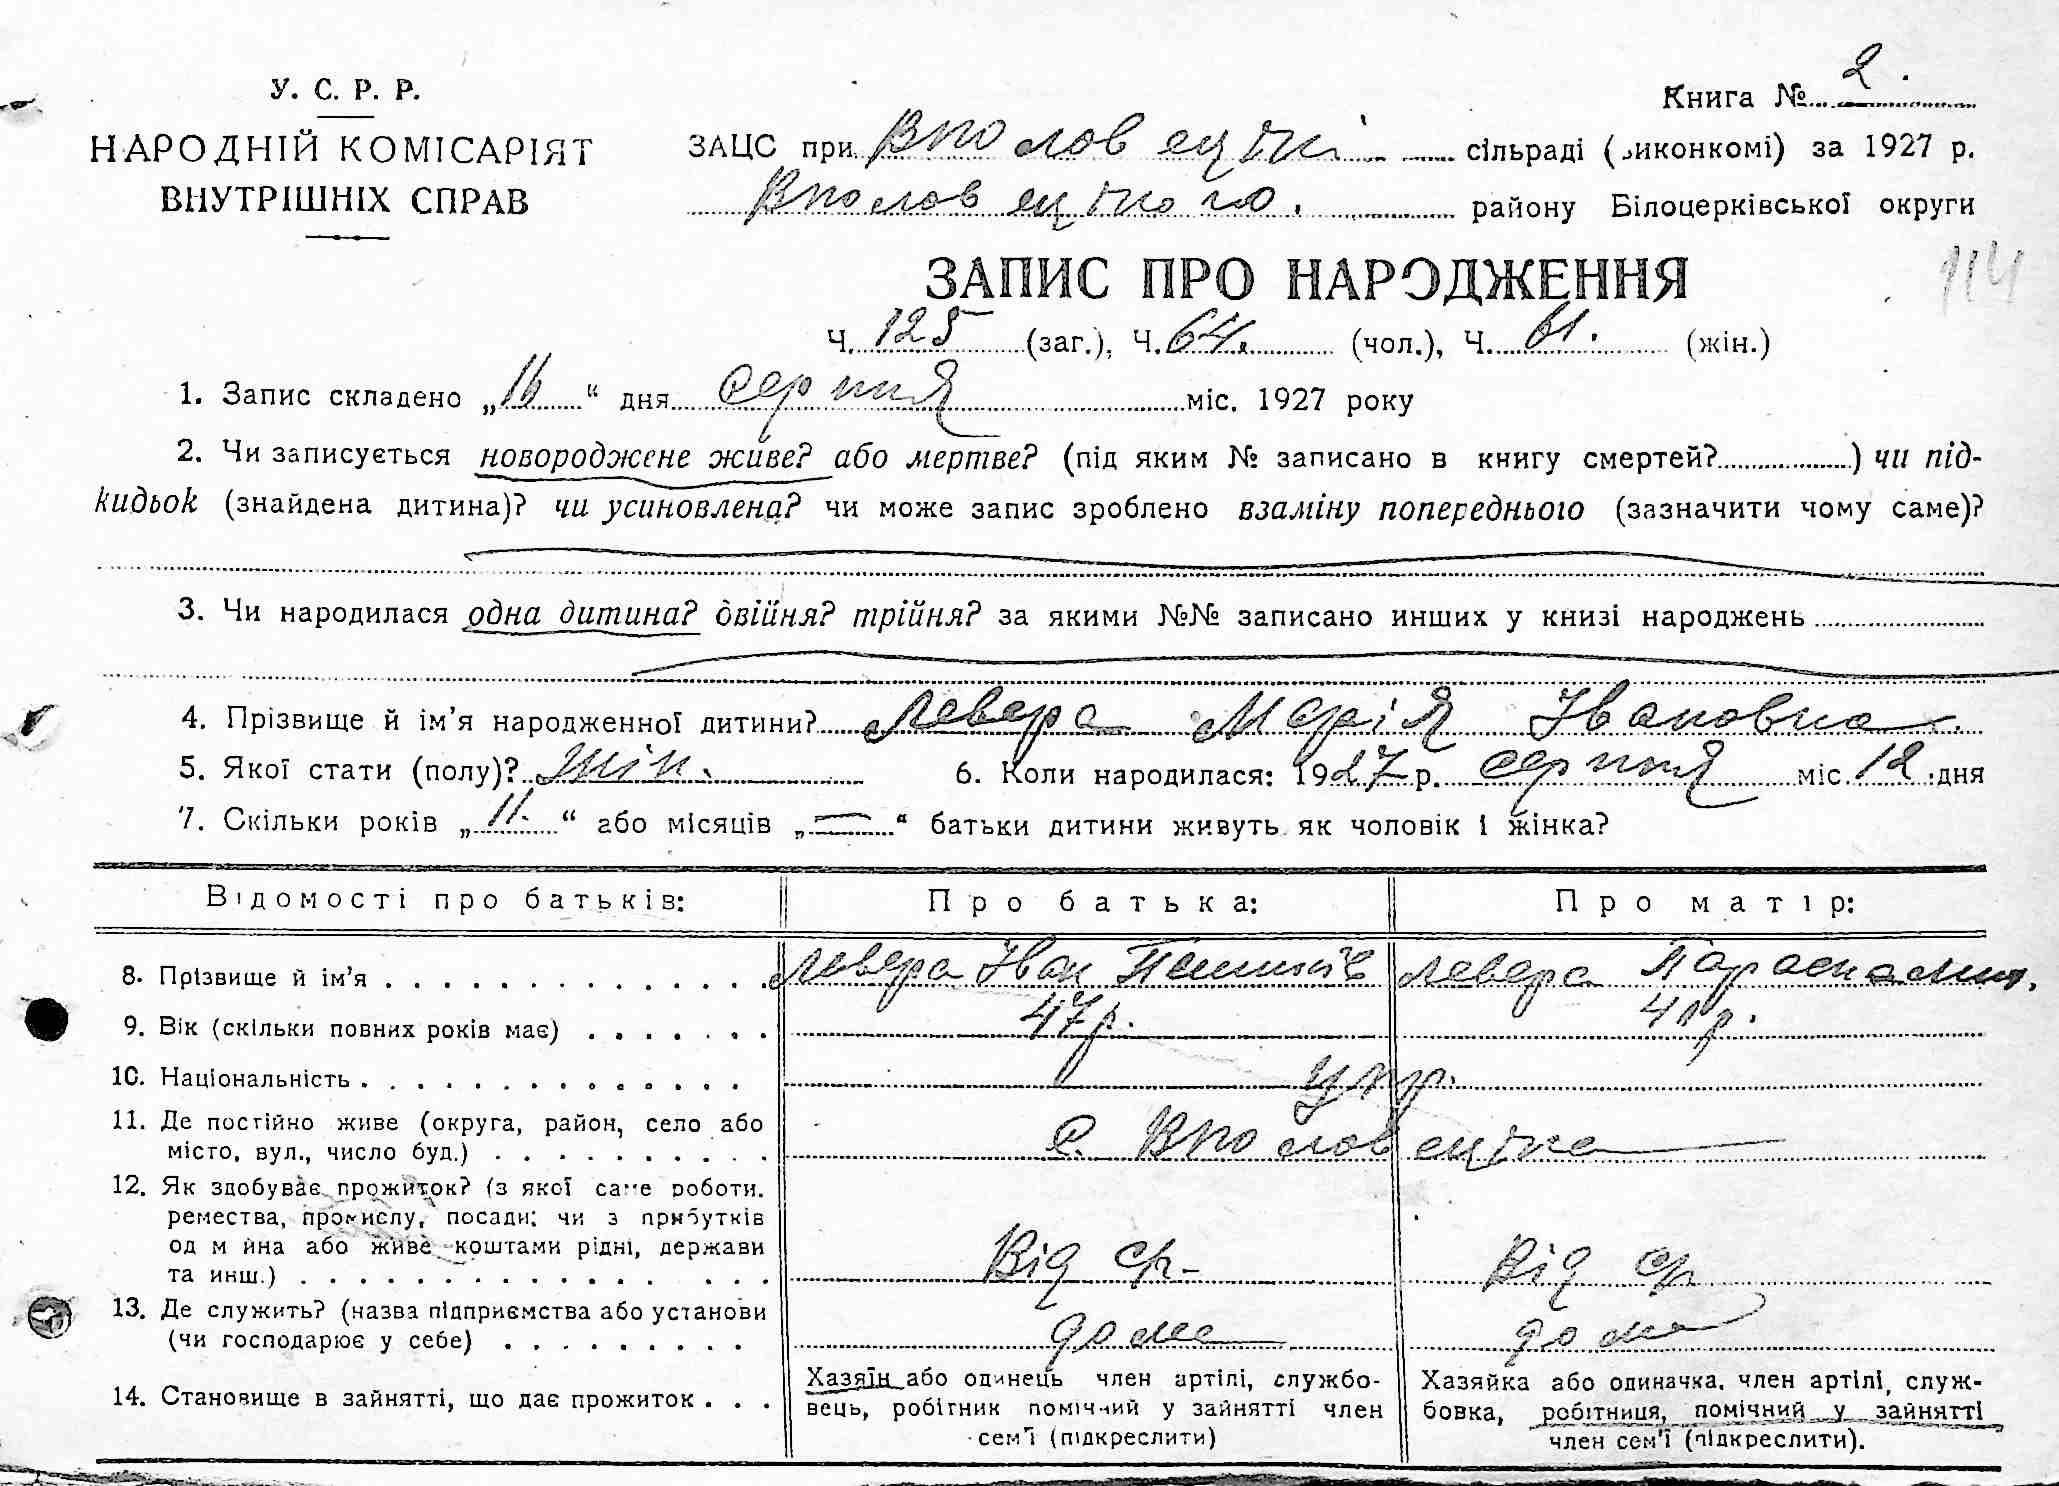 У. С. Р. Р.
НАРОДНІЙ КОМІСАРІЯТ
ВНУТРІШНІХ СПРАВ
Книга № 2.
ЗАЦС при Вполовецькі сільраді (виконкомі) за 1927 р.
Вполовецького. району Білоцерківської округи
ЗАПИС ПРО НАРОДЖЕННЯ
114
Ч. 125 (заг.), Ч. 64. (чол.), Ч. 61. (жін.)
1. Запис складено „16“ дня серпня міс. 1927 року
2. Чи записується новороджене живе? або мертве? (під яким № записано в книгу смертей?) чи під-
кидьок (знайдена дитина)? чи усиновлена? чи може запис зроблено взаміну попереднього (зазначити чому саме)?
3. Чи народилася одна дитина? двійня? трійня? за якими №№ записано инших у книзі народжень
4. Прізвище й ім’я народженної дитини? Левера Марія Івановна
5. Якої стати (полу)? жін. 6. Коли народилася: 1927 р. серпня міс. 12 дня
7. Скільки років „11.“ або місяців „—“ батьки дитини живуть як чоловік і жінка?
Відомості про батьків: Про батька: Про матір:
8. Прізвище й ім’я Левера Іван Левера
9. Вік (скільки повних років має) 47 р. 41 р.
10. Національність укр.
11. Де постійно живе (округа, район, село або
місто, вул., число буд.) с. Вполовецька
12. Як здобуває прожиток? (з якої саме роботи,
ремества, промислу, посади; чи з прибутків
од майна або живе коштами рідні, держави
та инш.) Від ср. Від ср
13. Де служить? (назва підприємства або установи
(чи господарює у себе) дома дома
14. Становище в зайнятті, що дає прожиток
Хазяїн або одинець член артілі, службо-
вець, робітник помічний у зайнятті член
сем’ї (підкреслити)
Хазяйка або одиначка, член артілі, служ-
бовка, робітниця, помічний у зайнятті
член сем’ї (підкреслити).